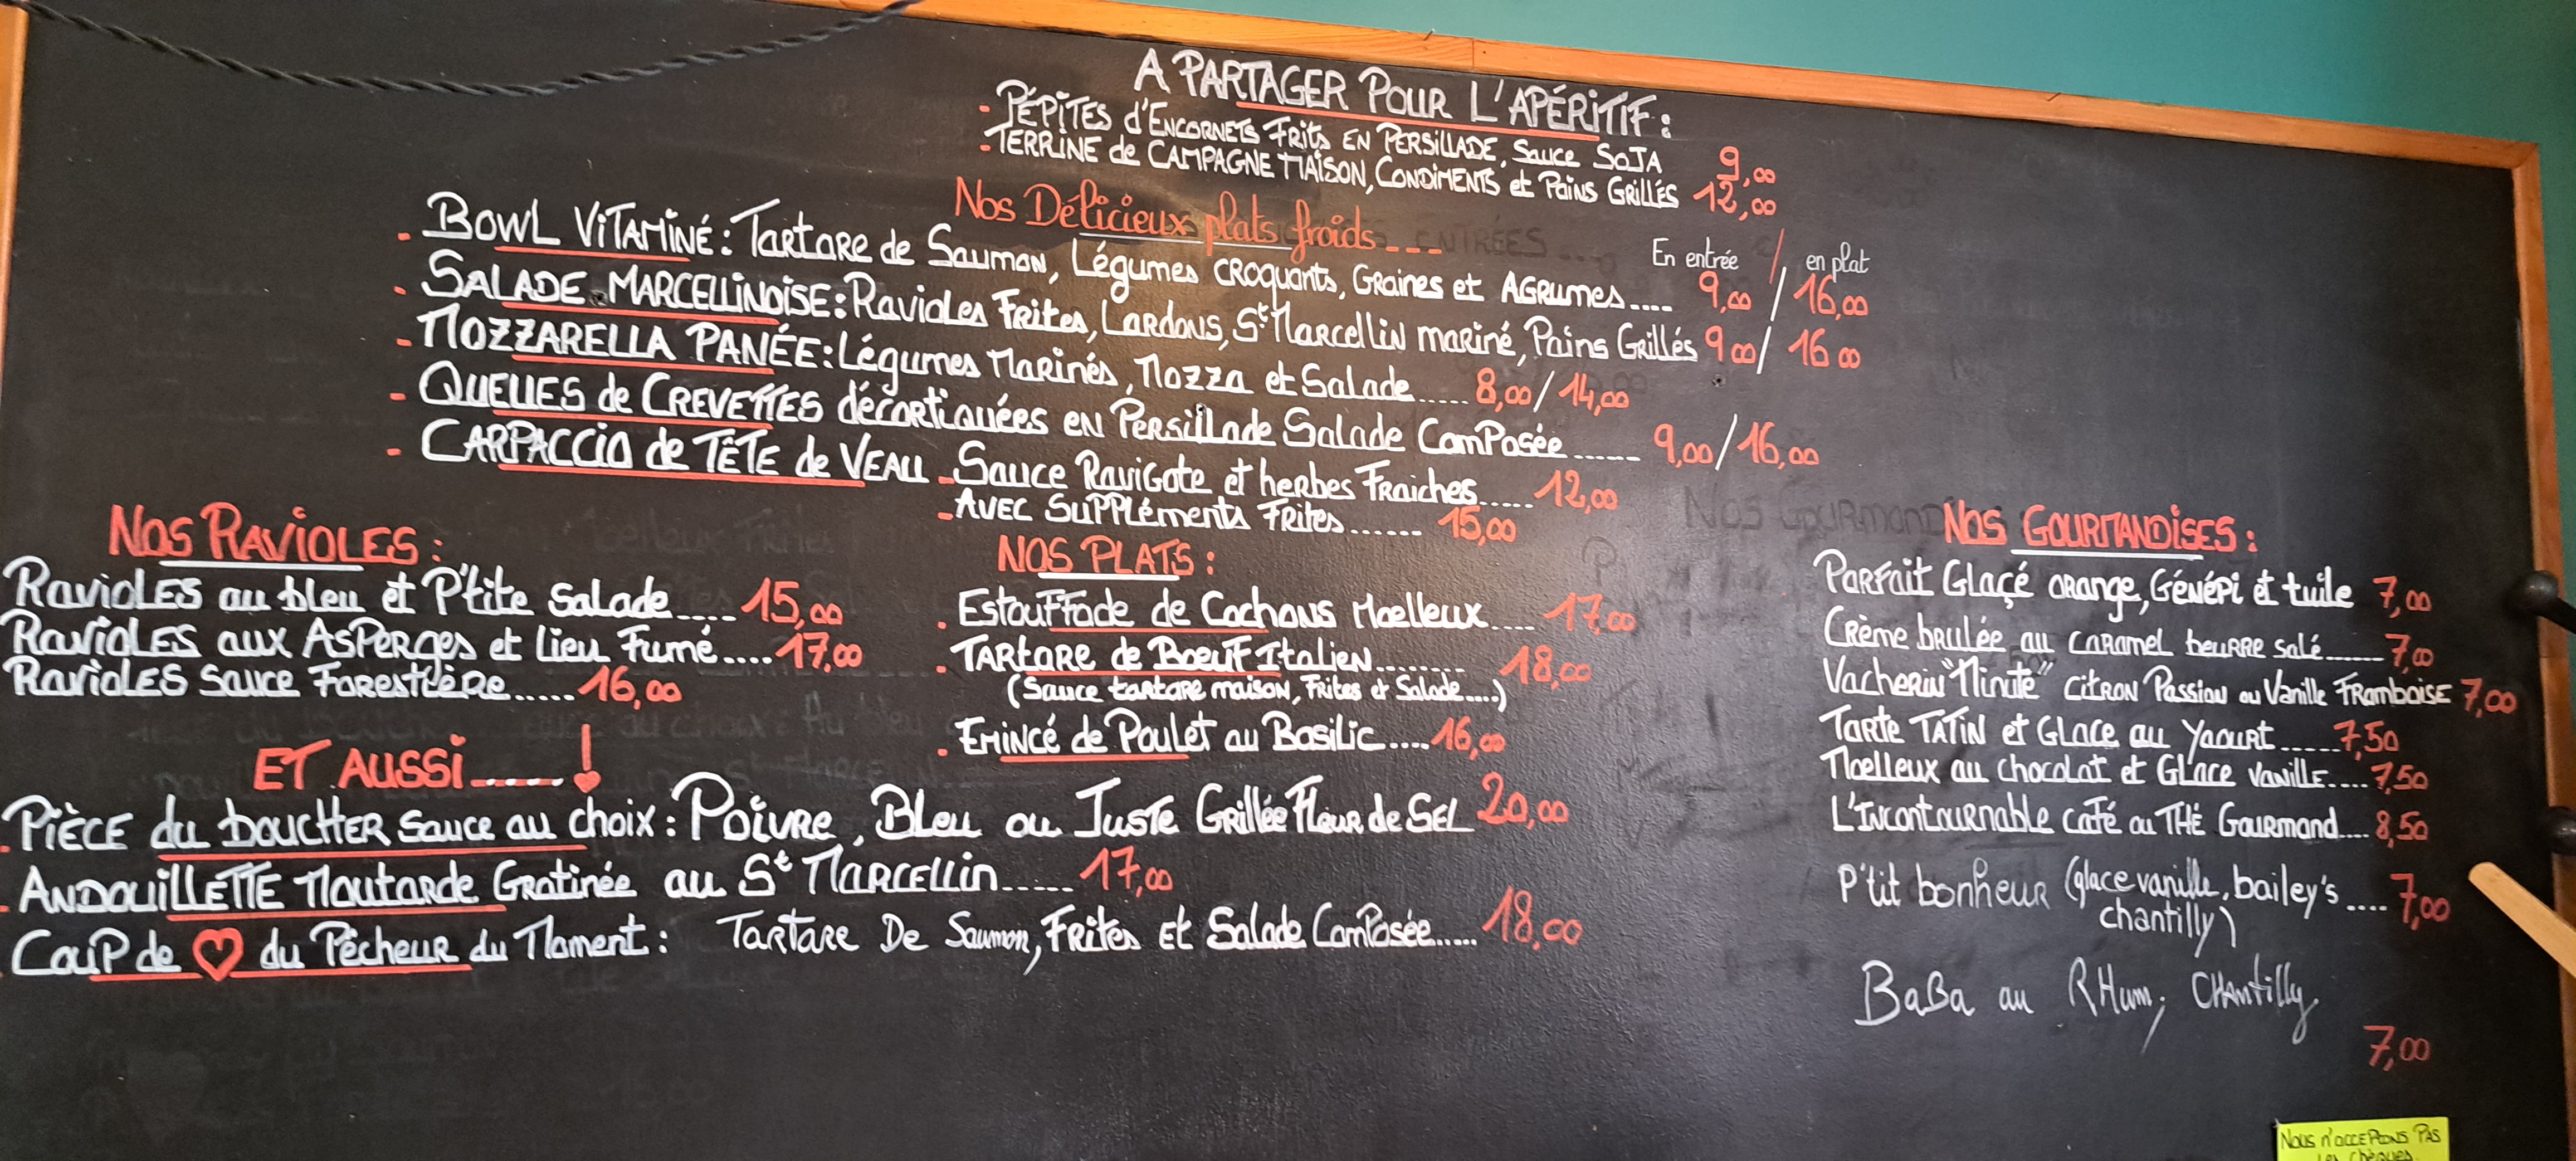 A PARTAGER POUR L'APÉRITIF :
- PÉPITES d'ENCORNETS FRITS EN PERSILLADE, SAUCE SOJA 9,00
- TERRINE de CAMPAGNE MAISON, CONDIMENTS et PAINS GRILLÉS 12,00
Nos Délicieux plats froids___
En entrée / en plat
- BOWL VITAMINÉ : Tartare de Saumon, Légumes croquants, Graines et Agrumes.... 9,00 / 16,00
- SALADE MARCELLINOISE : Ravioles Frites, Lardons, St Marcellin mariné, Pains Grillés 9 00 / 16 00
- MOZZARELLA PANÉE : Légumes Marinés, Mozza et Salade..... 8,00 / 14,00
- QUEUES de CREVETTES décortiquées en Persillade Salade Composée...... 9,00 / 16,00
- CARPACCIO de TÊTE de VEAU - Sauce Ravigote et herbes Fraiches..... 12,00
- AVEC Suppléments Frites...... 15,00
NOS RAVIOLES :
Ravioles au bleu et P'tite Salade.... 15,00
Ravioles aux Asperges et Lieu Fumé.... 17,00
Ravioles Sauce Forestière..... 16,00
NOS PLATS :
. Estouffade de Cochons Moelleux.... 17,00
. Tartare de Boeuf Italien........ 18,00
(Sauce tartare maison, Frites et Salade....)
. Emincé de Poulet au Basilic.... 16,00
ET AUSSI......!
. PIÈCE du boucher Sauce au choix : Poivre, Bleu ou Juste Grillée Fleur de SEL 20,00
. ANDOUILLETTE Moutarde Gratinée au St Marcellin..... 17,00
. Coup de ♥ du Pêcheur du Moment : Tartare De Saumon, Frites Et Salade Composée..... 18,00
NOS GOURMANDISES :
Parfait Glaçé orange, Génépi et tuile 7,00
Crème brulée au caramel beurre salé...... 7,00
Vacherin "Minute" citron Passion ou Vanille Framboise 7,00
Tarte TATIN et Glace au Yaourt..... 7,50
Moelleux au chocolat et Glace vanille.... 7,50
L'Incontournable café ou THÉ Gourmand.... 8,50
P'tit bonheur (glace vanille, bailey's .... 7,00
chantilly)
BaBa au RHum, CHantilly
7,00
NOUS N'ACCEPTONS PAS
LES chèques